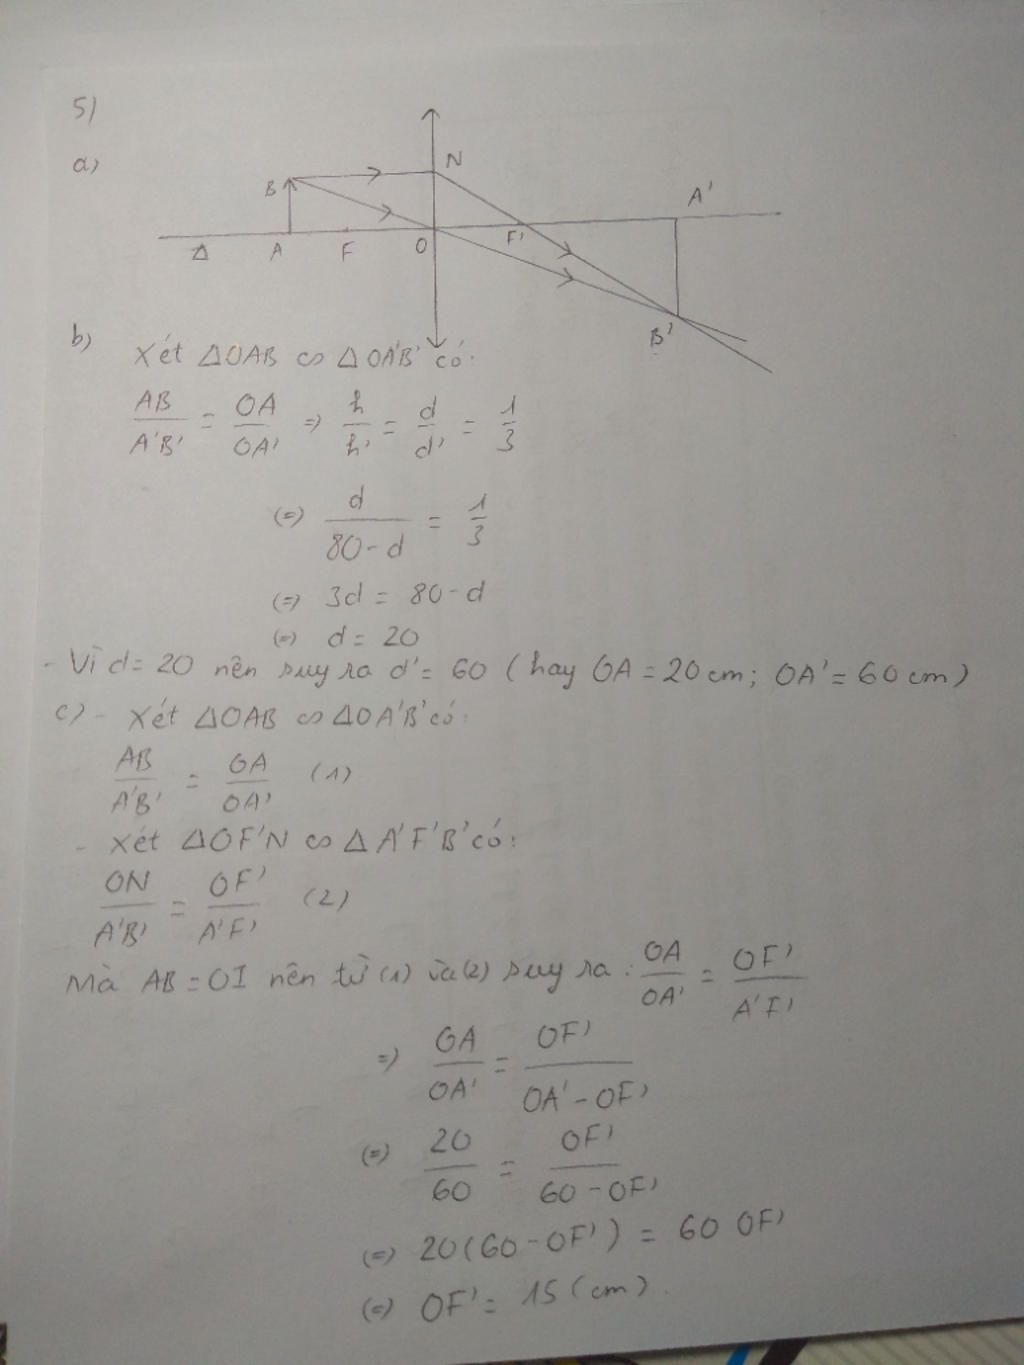 5)
a)
B N A'
Δ A F O F' B'
b) Xét ΔOAB ∽ ΔOA'B' có:
AB/A'B' = OA/OA' => h/h' = d/d' = 1/3
(=) d/(80-d) = 1/3
(=) 3d = 80-d
(=) d = 20
- Vì d = 20 nên suy ra d' = 60 (hay OA = 20 cm; OA' = 60 cm)
c) - Xét ΔOAB ∽ ΔOA'B' có:
AB/A'B' = OA/OA' (1)
- Xét ΔOF'N ∽ ΔA'F'B' có:
ON/A'B' = OF'/A'F' (2)
Mà AB = OI nên từ (1) và (2) suy ra: OA/OA' = OF'/A'F'
=) OA/OA' = OF'/(OA'-OF')
(=) 20/60 = OF'/(60-OF')
(=) 20(60-OF') = 60 OF'
(=) OF' = 15 (cm).